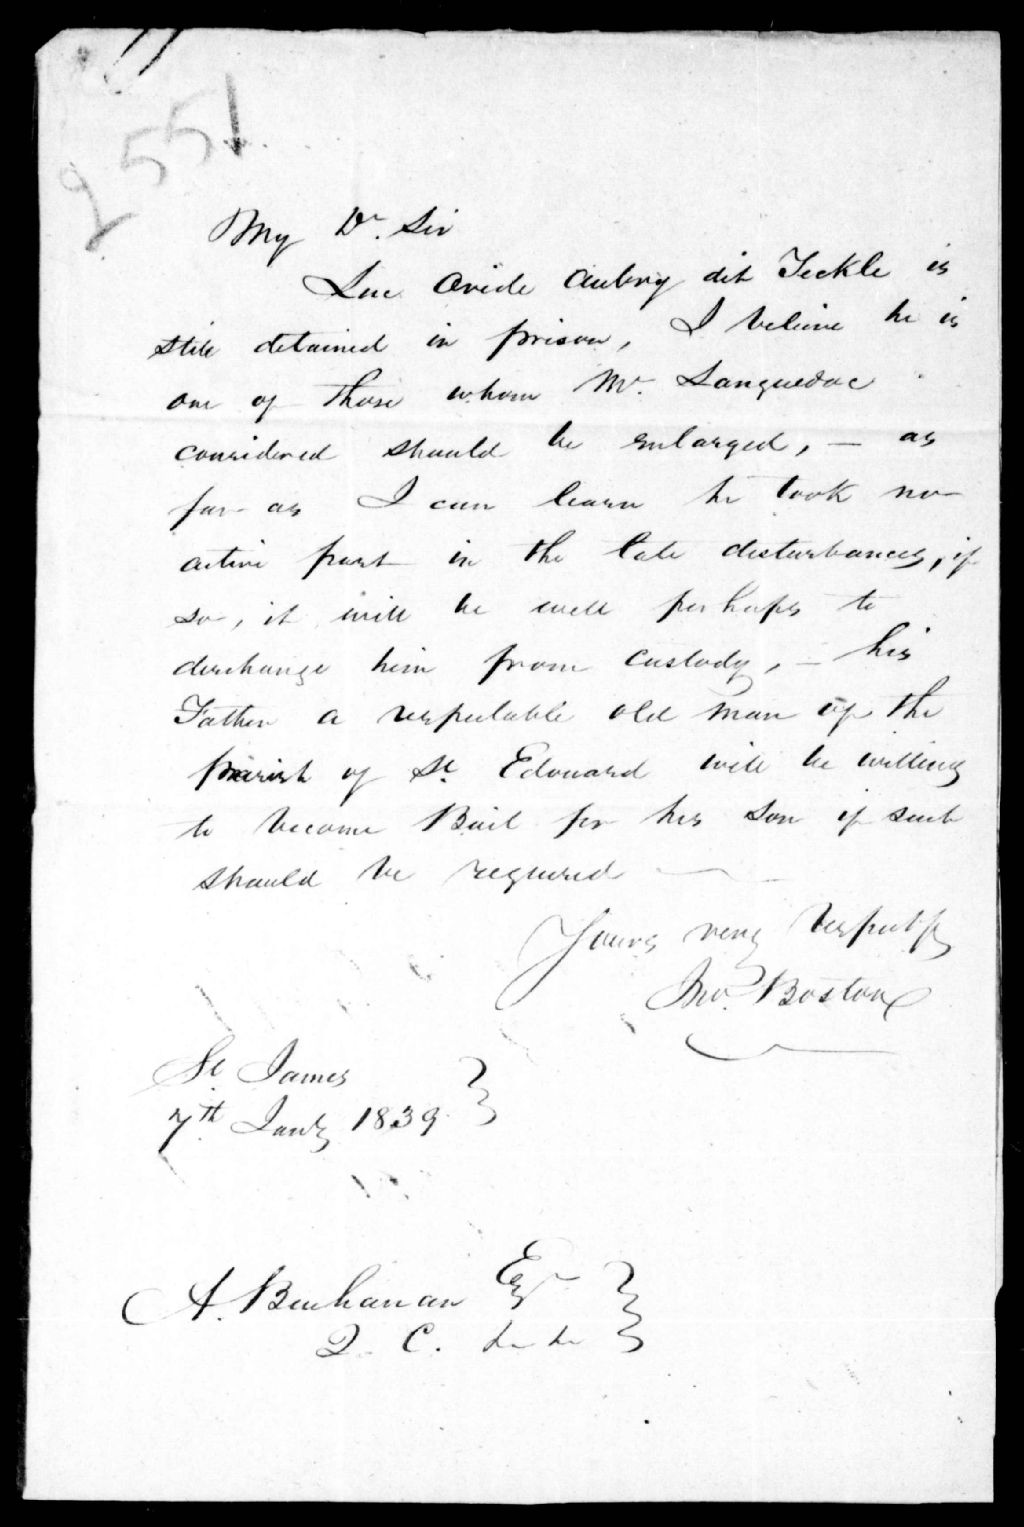 2551
My Dr. Sir
Luc Ovide Aubry dit Teckle is
still detained in prison, I believe he is
one of those whom Mr. Languedoc
considered should be enlarged, – as
far as I can learn he took no
active part in the late disturbances, if
so, it will be well perhaps to
discharge him from custody, – his
Father a respectable old man of the
parish of St. Edouard will be willing
to become Bail for his son if such
should be required —
Yours very respectfy
Jno. Boston
St James
7th Jany 1839
A. Buchanan Esqr
Q. C.